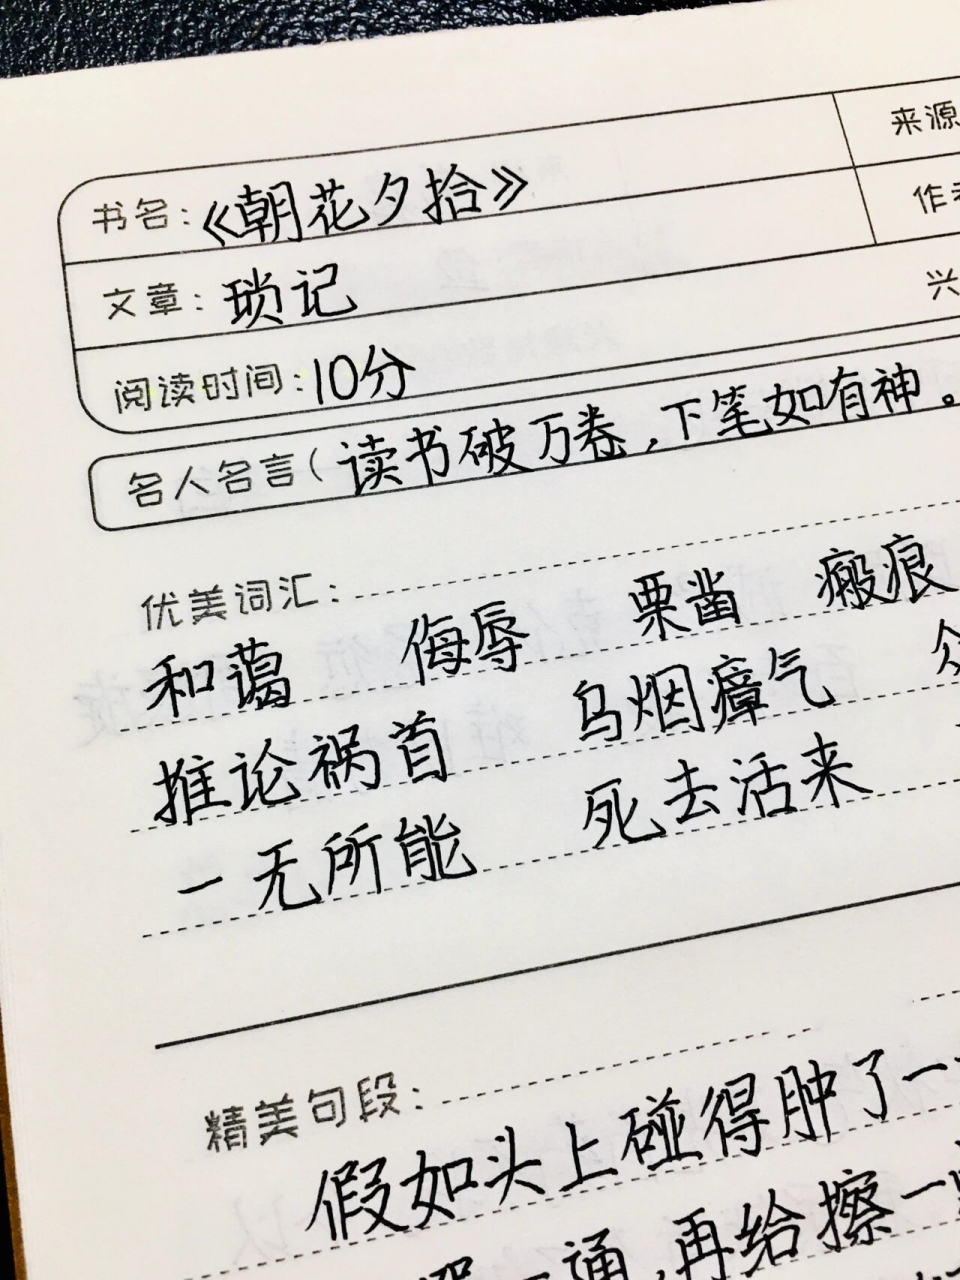 来源
书名:《朝花夕拾》
作
文章:琐记
兴
阅读时间:10分
名人名言(读书破万卷,下笔如有神。
优美词汇:
和蔼 侮辱 栗凿 瘢痕
推论祸首 乌烟瘴气 众
一无所能 死去活来
精美句段:
假如头上碰得肿了一
一通,再给擦一